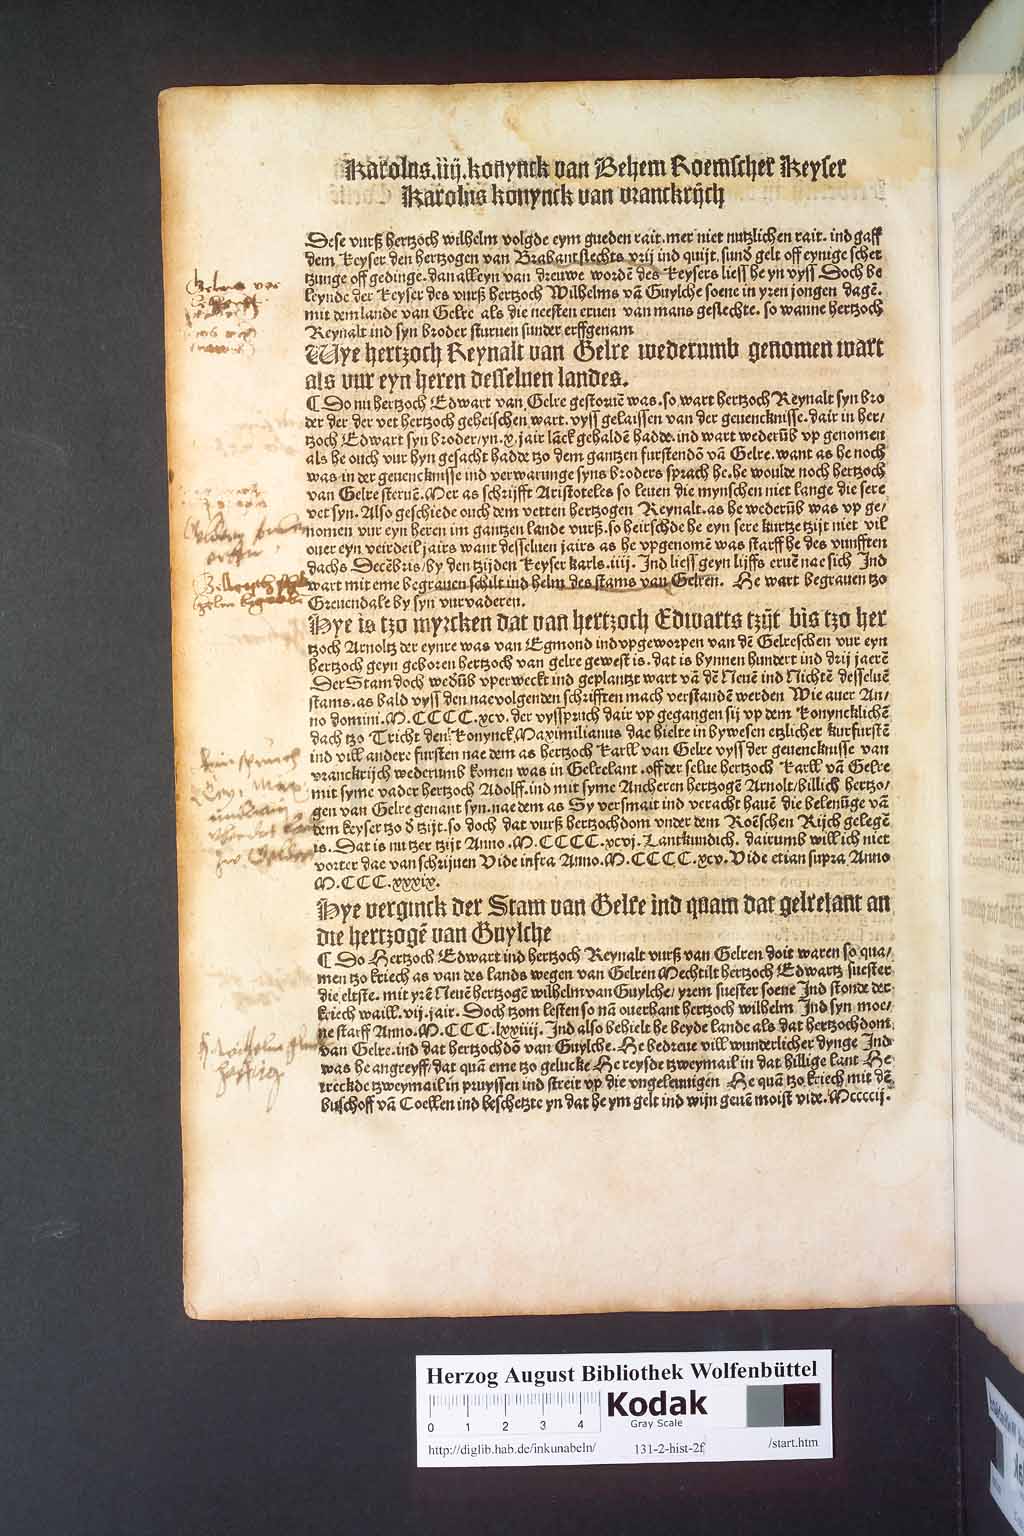 Karolus.iiij.konynck van Behem Roemscher Keyser
Karolus konynck van vranckrijch
Dese vurß hertzoch wilhelm volgde eym gueden rait. mer niet nutzlichen rait. ind gaff
dem Keyser den hertzogen van Brabant slechts vrij ind quijt. sund gelt off eynige schet
tzunge off gedinge. dan alleyn van dreuwe wordē des Keysers liess he yn vyss Doch be
leynde der Keyser des vurß hertzoch Wilhelms vā Guylche soene in yren jongen dagē.
mit dem lande van Gelre als die neesten eruen van mans geslechte. so wanne hertzoch
Reynalt ind syn broder sturuen sunder erffgenam
Wye hertzoch Reynalt van Gelre wederumb genomen wart
als vur eyn heren desseluen landes.
¶ Do nu hertzoch Edwart van Gelre gestoruē was. so wart hertzoch Reynalt syn bro
der der der vet hertzoch geheischen wart. vyss gelaissen van der geuencknisse. dair in her/
tzoch Edwart syn broder/yn. x. jair lāck gehaldē hadde. ind wart wederūb vp genomen
als he ouch vur hyn gesacht hadde tzo dem gantzen furstendō vā Gelre. want as he noch
was in der geuencknisse ind verwarunge syns broders sprach he. he woulde noch hertzoch
van Gelre steruē. Mer as schrijfft Aristoteles so leuen die mynschen niet lange die sere
vet syn. Also geschiede ouch dem vetten hertzogen Reynalt. as he wederūb was vp ge/
nomen vur eyn heren im gantzen lande vurß. so heirschde he eyn sere kurtze tzijt niet vil
ouer eyn veirdeil jairs want desseluen jairs as he vpgenomē was starff he des vunfften
dachs Decēbris/by den tzijden Keyser karls. iiij. Ind liess geyn lijffs eruē nae sich Ind
wart mit eme begrauen schilt ind helm des stams van Gelren. He wart begrauen tzo
Greuendale by syn vurvaderen.
Hye is tzo myrcken dat van hertzoch Edwarts tzijt bis tzo her
tzoch Arnoltz der eynre was van Egmond ind vpgeworpen van dē Gelreschen vur eyn
hertzoch geyn geboren hertzoch van gelre gewest is. dat is bynnen hundert ind drij jaerē
Der Stam doch wedūb vperweckt ind geplantzt wart vā dē Neuē ind Nichtē desseluē
stams. as bald vyss den naevolgenden schrifften mach verstandē werden Wie auer An/
no domini. M.CCCC.xcv. der vysspruch dair vp gegangen sij vp dem Konyncklichē
dach tzo Tricht den Konynck Maximilianus dae hielte in bywesen etzlicher kurfurstē
ind vill andere fursten nae dem as hertzoch Karll van Gelre vyss der geuencknisse van
vranckrijch wederumb komen was in Gelrelant. off der selue hertzoch Karll vā Gelre
mit syme vader hertzoch Adolff. ind mit syme Ancheren hertzogē Arnolt/billich hertzo/
gen van Gelre genant syn. nae dem as Sy versmait ind veracht hauē die belenūge vā
dem keyser tzo d tzijt. so doch dat vurß hertzochdom vnder dem Roēschen Rijch gelegē
is. Dat is nu tzer tzijt Anno. M.CCCC.xcvj. Lantkundich. dairumb will ich niet
vorter dae van schrijuen Vide infra Anno. M.CCCC.xcv. Vide etian supra Anno
M.CCC.xxxix.
Hye verginck der Stam van Gelre ind quam dat gelrelant an
die hertzogē van Guylche
¶ Do Hertzoch Edwart ind hertzoch Reynalt vurß van Gelren doit waren so qua/
men tzo kriech as van des lands wegen van Gelren Mechtilt hertzoch Edwartz suester
die eltste. mit yrē Neuē hertzogē wilhelm van Guylche/ yrem suester soene Ind stonde der
kriech waill. vij. jair. Doch tzom lesten so nā ouerhant hertzoch wilhelm Ind syn moe/
ne starff Anno. M.CCC.lxxiiij. Ind also behielt he beyde lande als dat hertzochdom
van Gelre. ind dat hertzochdō van Guylche. He bedreue vill wunderlicher dynge Ind
was he angreyff/dat quā eme tzo gelucke He reysde tzweymail in dat hillige lant He
treckde tzweymail in pruyssen ind streit vp die vngeleuuigen He quā tzo kriech mit dē
buschoff vā Coellen ind beschetzte yn dat he ym gelt ind wijn geuē moist vide. Mccccij.
Herzog August Bibliothek Wolfenbüttel
0 1 2 3 4
Kodak
Gray Scale
http://diglib.hab.de/inkunabeln/ 131-2-hist-2f /start.htm